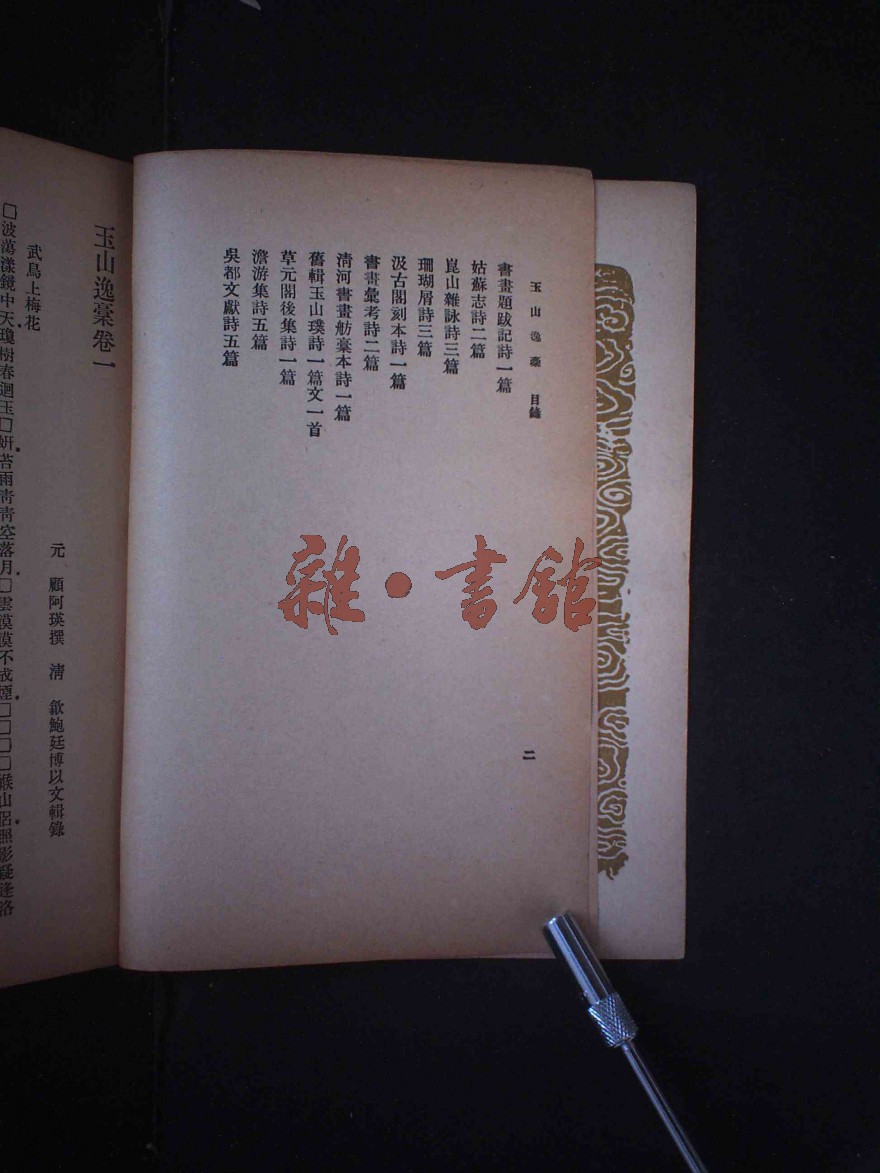 玉山逸稾 目錄
書畫題跋記詩一篇
姑蘇志詩二篇
崑山雜詠詩三篇
珊瑚屑詩三篇
汲古閣刻本詩一篇
書畫彙考詩二篇
清河書畫舫稾本詩一篇
舊輯玉山璞詩一篇文一首
草元閣後集詩一篇
澹游集詩五篇
吳都文獻詩五篇
二
玉山逸稾卷一
元 顧阿瑛撰 清 歙鮑廷博以文輯錄
武鳥上梅花
□波蕩漾鏡中天瓊樹春迴玉□姸苔雨靑靑空落月□雲漠漠不成煙□□□□緱山侶照影疑逢洛
雜·書館